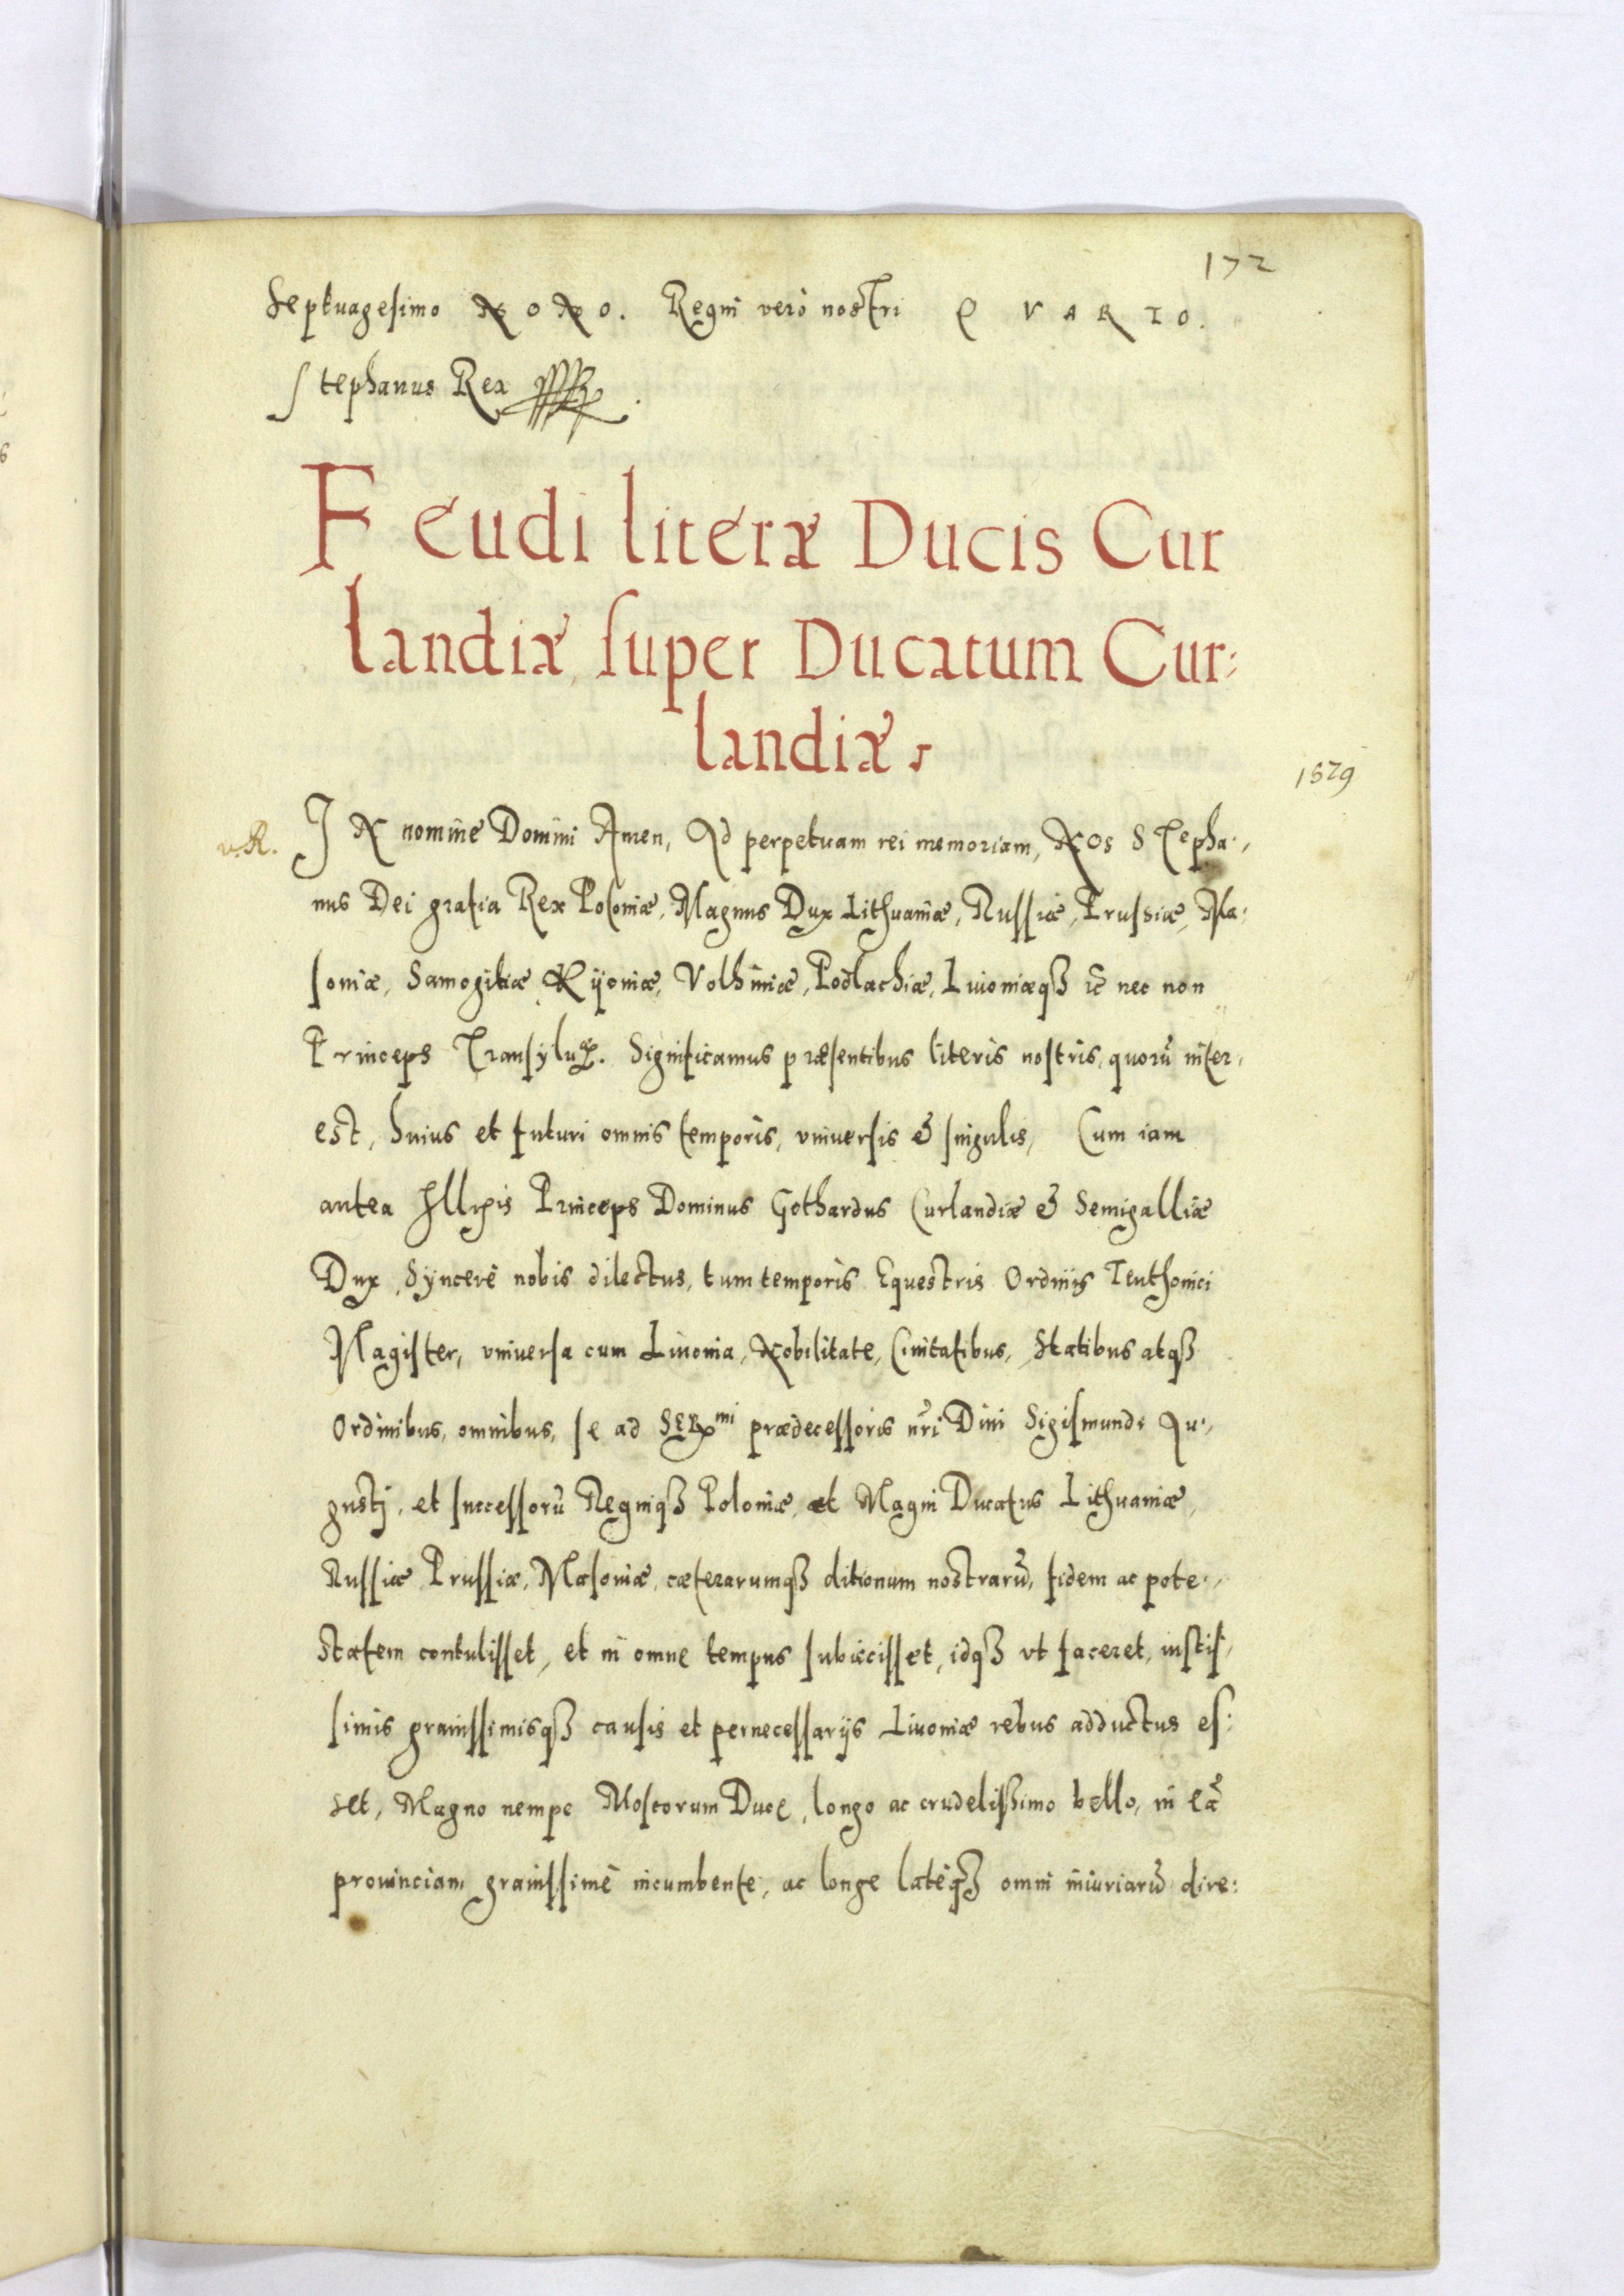 172
Septuagesimo NONO. Regni vero nostri QVARTO.
Stephanus Rex
Feudi literæ Ducis Cur
landiæ super Ducatum Cur:
landiæ.
1579
v. R.
IN nomine Domini Amen, Ad perpetuam rei memoriam, Nos Stepha.,
nus Dei gratia Rex Poloniæ, Magnus Dux Lithuaniæ, Russiæ, Prussiæ, Ma.
soniæ, Samogitiæ Kijoniæ, Volhiniæ, Podlachiæ, Liuoniæqȝ ꝛc̄ nec non
Princeps Transyluæ. Significamus præsentibus literis nostris, quorū inter,
est, huius et futuri omnis temporis, vniuersis & singulis, Cum iam
antea Illris Princeps Dominus Gothardus Curlandiæ & Semigalliæ
Dux, Syncerè nobis dilectus, tum temporis Equestris Ordinis Teuthonici
Magister, vniuersa cum Liuonia, Nobilitate, Ciuitatibus, Statibus atqȝ
Ordinibus, omnibus, se ad SERmi prædecessoris nr̄i Dini Sigismundi Au.,
gustj, et successorū Regniqȝ Poloniæ, et Magni Ducatus Lithuaniæ,
Russiæ Prussiæ, Masoniæ, cæterarumqȝ ditionum nostrarū, fidem ac pote.,
statem contulisset, et in omne tempus subiecisset, idqȝ vt faceret, iustis,
simis grauissimisqȝ causis et pernecessarijs Liuoniæ rebus adductus es:
set, Magno nempe Moscorum Duce, longo ac crudelissimo bello, in eā
prouinciam grauissimè incumbente, ac longe latèqȝ omni iniuriarū dire: